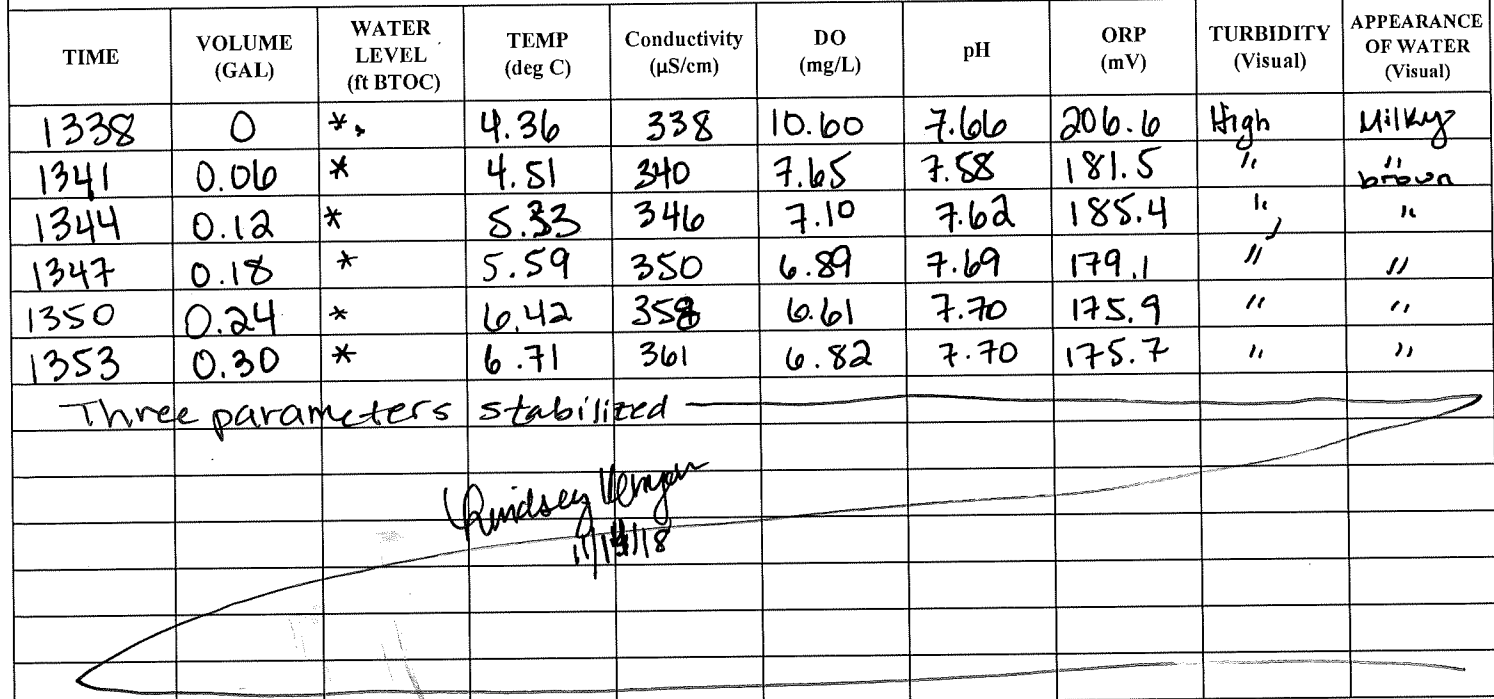 TIME VOLUME (GAL) WATER LEVEL (ft BTOC) TEMP (deg C) Conductivity (µS/cm) DO (mg/L) pH ORP (mV) TURBIDITY (Visual) APPEARANCE OF WATER (Visual)
1338 0 *, 4.36 338 10.60 7.66 206.6 High Milky
1341 0.06 * 4.51 340 7.65 7.58 181.5 " " brown
1344 0.12 * 5.33 346 7.10 7.62 185.4 " "
1347 0.18 * 5.59 350 6.89 7.69 179.1 " "
1350 0.24 * 6.42 358 6.61 7.70 175.9 " "
1353 0.30 * 6.71 361 6.82 7.70 175.7 " "
Three parameters stabilized
Lindsey